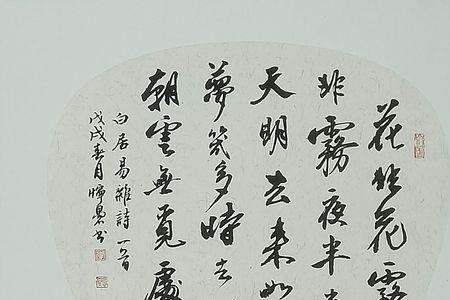 花非花霧
非霧夜半
天明去来如
夢幾多時去
朝雲無覓處
白居易雜詩一首
戊戌春月书